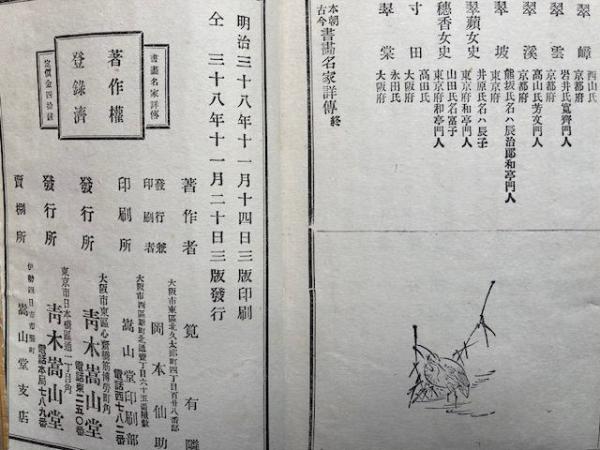 翠嶂 西山氏 京都府
翠雲 岩井氏寬齊門人 京都府
翠溪 高山氏芳文門人 京都府
翠坡 熊坂氏名ハ辰治郎和亭門人 東京府
翠蘋女史 井原氏名ハ辰子 東京府和亭門人
穗香女史 山田氏名富子 東京府和亭門人
寸田 高田氏 大阪府
翠棠 永田氏 大阪府
本朝古今書畫名家詳傳終
明治三十八年十一月十四日三版印刷
仝 三十八年十一月二十日三版發行
書畫名家詳傳
著作權登錄濟
定價金四拾錢
著作者 筧有隣
大阪市東區北久太郎町四丁目百廿八番邸
發行兼印刷者 岡本仙助
印刷所 嵩山堂印刷部
電話西七八二番
大阪市東區心齋橋筋博勞町角
發行所 靑木嵩山堂
電話東二五〇番
東京市日本橋區通一丁目角
發行所 靑木嵩山堂
電話本局七八九番
伊勢四日市市
賣捌所 嵩山堂支店